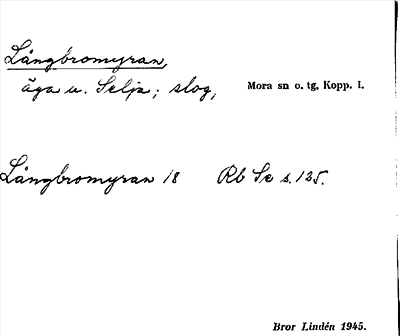 Långbromyran,
äga u. Selja; slog,
Mora sn o. tg, Kopp. l.
Långbromyran 18 Rb Se s. 125.
Bror Lindén 1945.